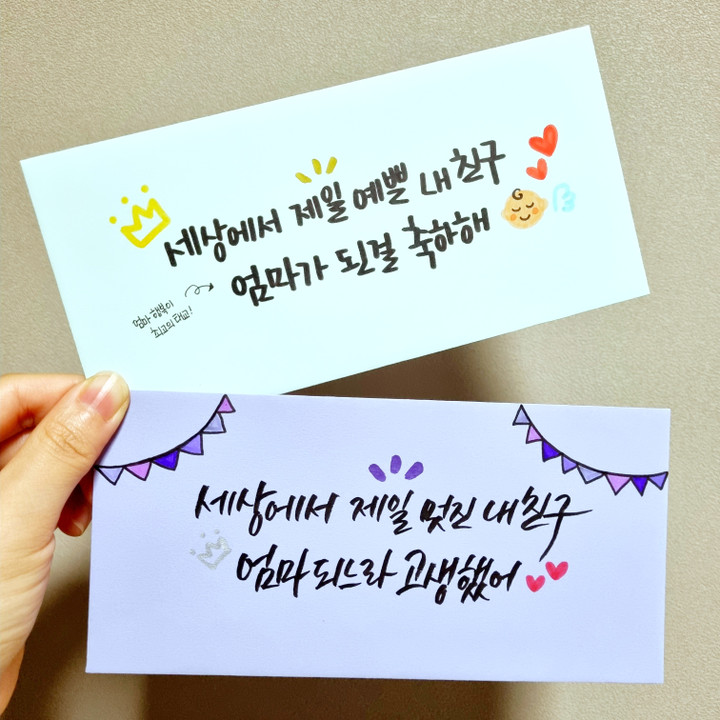 세상에서 제일 예쁜 내 친구
엄마가 된걸 축하해
엄마 행복이
최고의 태교!
세상에서 제일 멋진 내 친구
엄마 되느라 고생했어